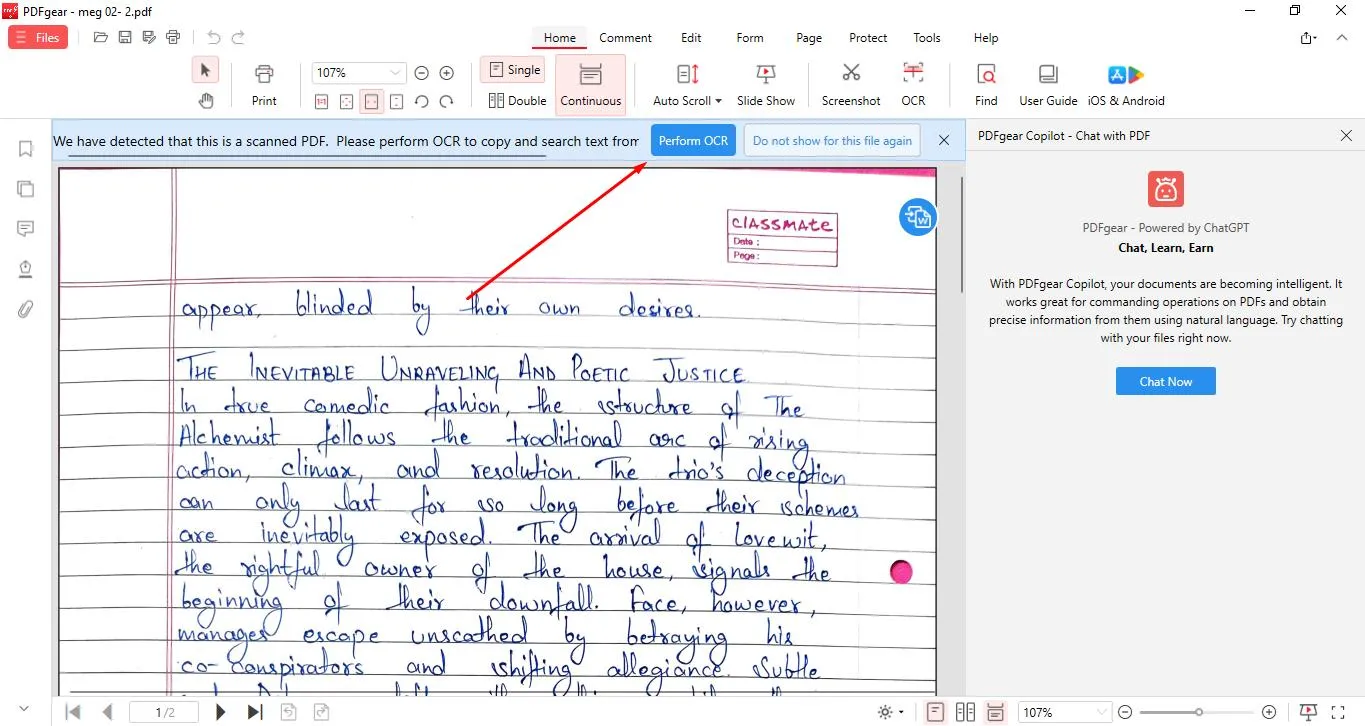 PDFgear - meg 02- 2.pdf
Files
Home Comment Edit Form Page Protect Tools Help
107%
Single
Double
Continuous
Print
Auto Scroll
Slide Show
Screenshot
OCR
Find
User Guide
iOS & Android
We have detected that this is a scanned PDF. Please perform OCR to copy and search text from
Perform OCR
Do not show for this file again
PDFgear Copilot - Chat with PDF
classmate
Date :
Page :
appear, blinded by their own desires.
THE INEVITABLE UNRAVELING AND POETIC JUSTICE
In true comedic fashion, the structure of The
Alchemist follows the traditional arc of rising
action, climax, and resolution. The trio's deception
can only last for so long before their schemes
are inevitably exposed. The arrival of Lovewit,
the rightful owner of the house, signals the
beginning of their downfall. Face, however,
manages escape unscathed by betraying his
co-conspirators and shifting allegiance. Subtle
PDFgear - Powered by ChatGPT
Chat, Learn, Earn
With PDFgear Copilot, your documents are becoming intelligent. It
works great for commanding operations on PDFs and obtain
precise information from them using natural language. Try chatting
with your files right now.
Chat Now
1/2
107%